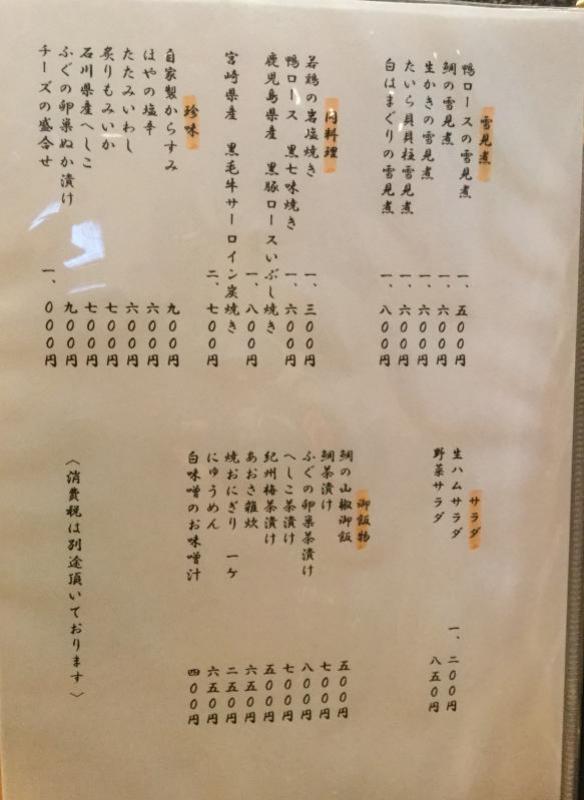 雪見煮
鴨ロースの雪見煮 一、五〇〇円
鯛の雪見煮 一、六〇〇円
生かきの雪見煮 一、六〇〇円
たいら貝貝柱雪見煮 一、六〇〇円
白はまぐりの雪見煮 一、八〇〇円
肉料理
若鶏の岩塩焼き 一、三〇〇円
鴨ロース 黒七味焼き 一、六〇〇円
鹿児島県産 黒豚ロースいぶし焼き
一、八〇〇円
宮崎県産 黒毛牛サーロイン炭焼き
二、七〇〇円
珍味
自家製からすみ 九〇〇円
はやの塩辛 六〇〇円
たたみいわし 六〇〇円
炙りもみいか 七〇〇円
石川県産へしこ 七〇〇円
ふぐの卵巣ぬか漬け 九〇〇円
チーズの盛合せ 一、〇〇〇円
サラダ
生ハムサラダ 一、二〇〇円
野菜サラダ 八五〇円
御飯物
鯛の山椒御飯 五〇〇円
鯛茶漬け 七〇〇円
ふぐの卵巣茶漬け 八〇〇円
へしこ茶漬け 七〇〇円
紀州梅茶漬け 五〇〇円
あおさ雑炊 六五〇円
焼おにぎり 一ケ 二五〇円
にゅうめん 六五〇円
白味噌のお味噌汁 四〇〇円
〈消費税は別途頂いております〉